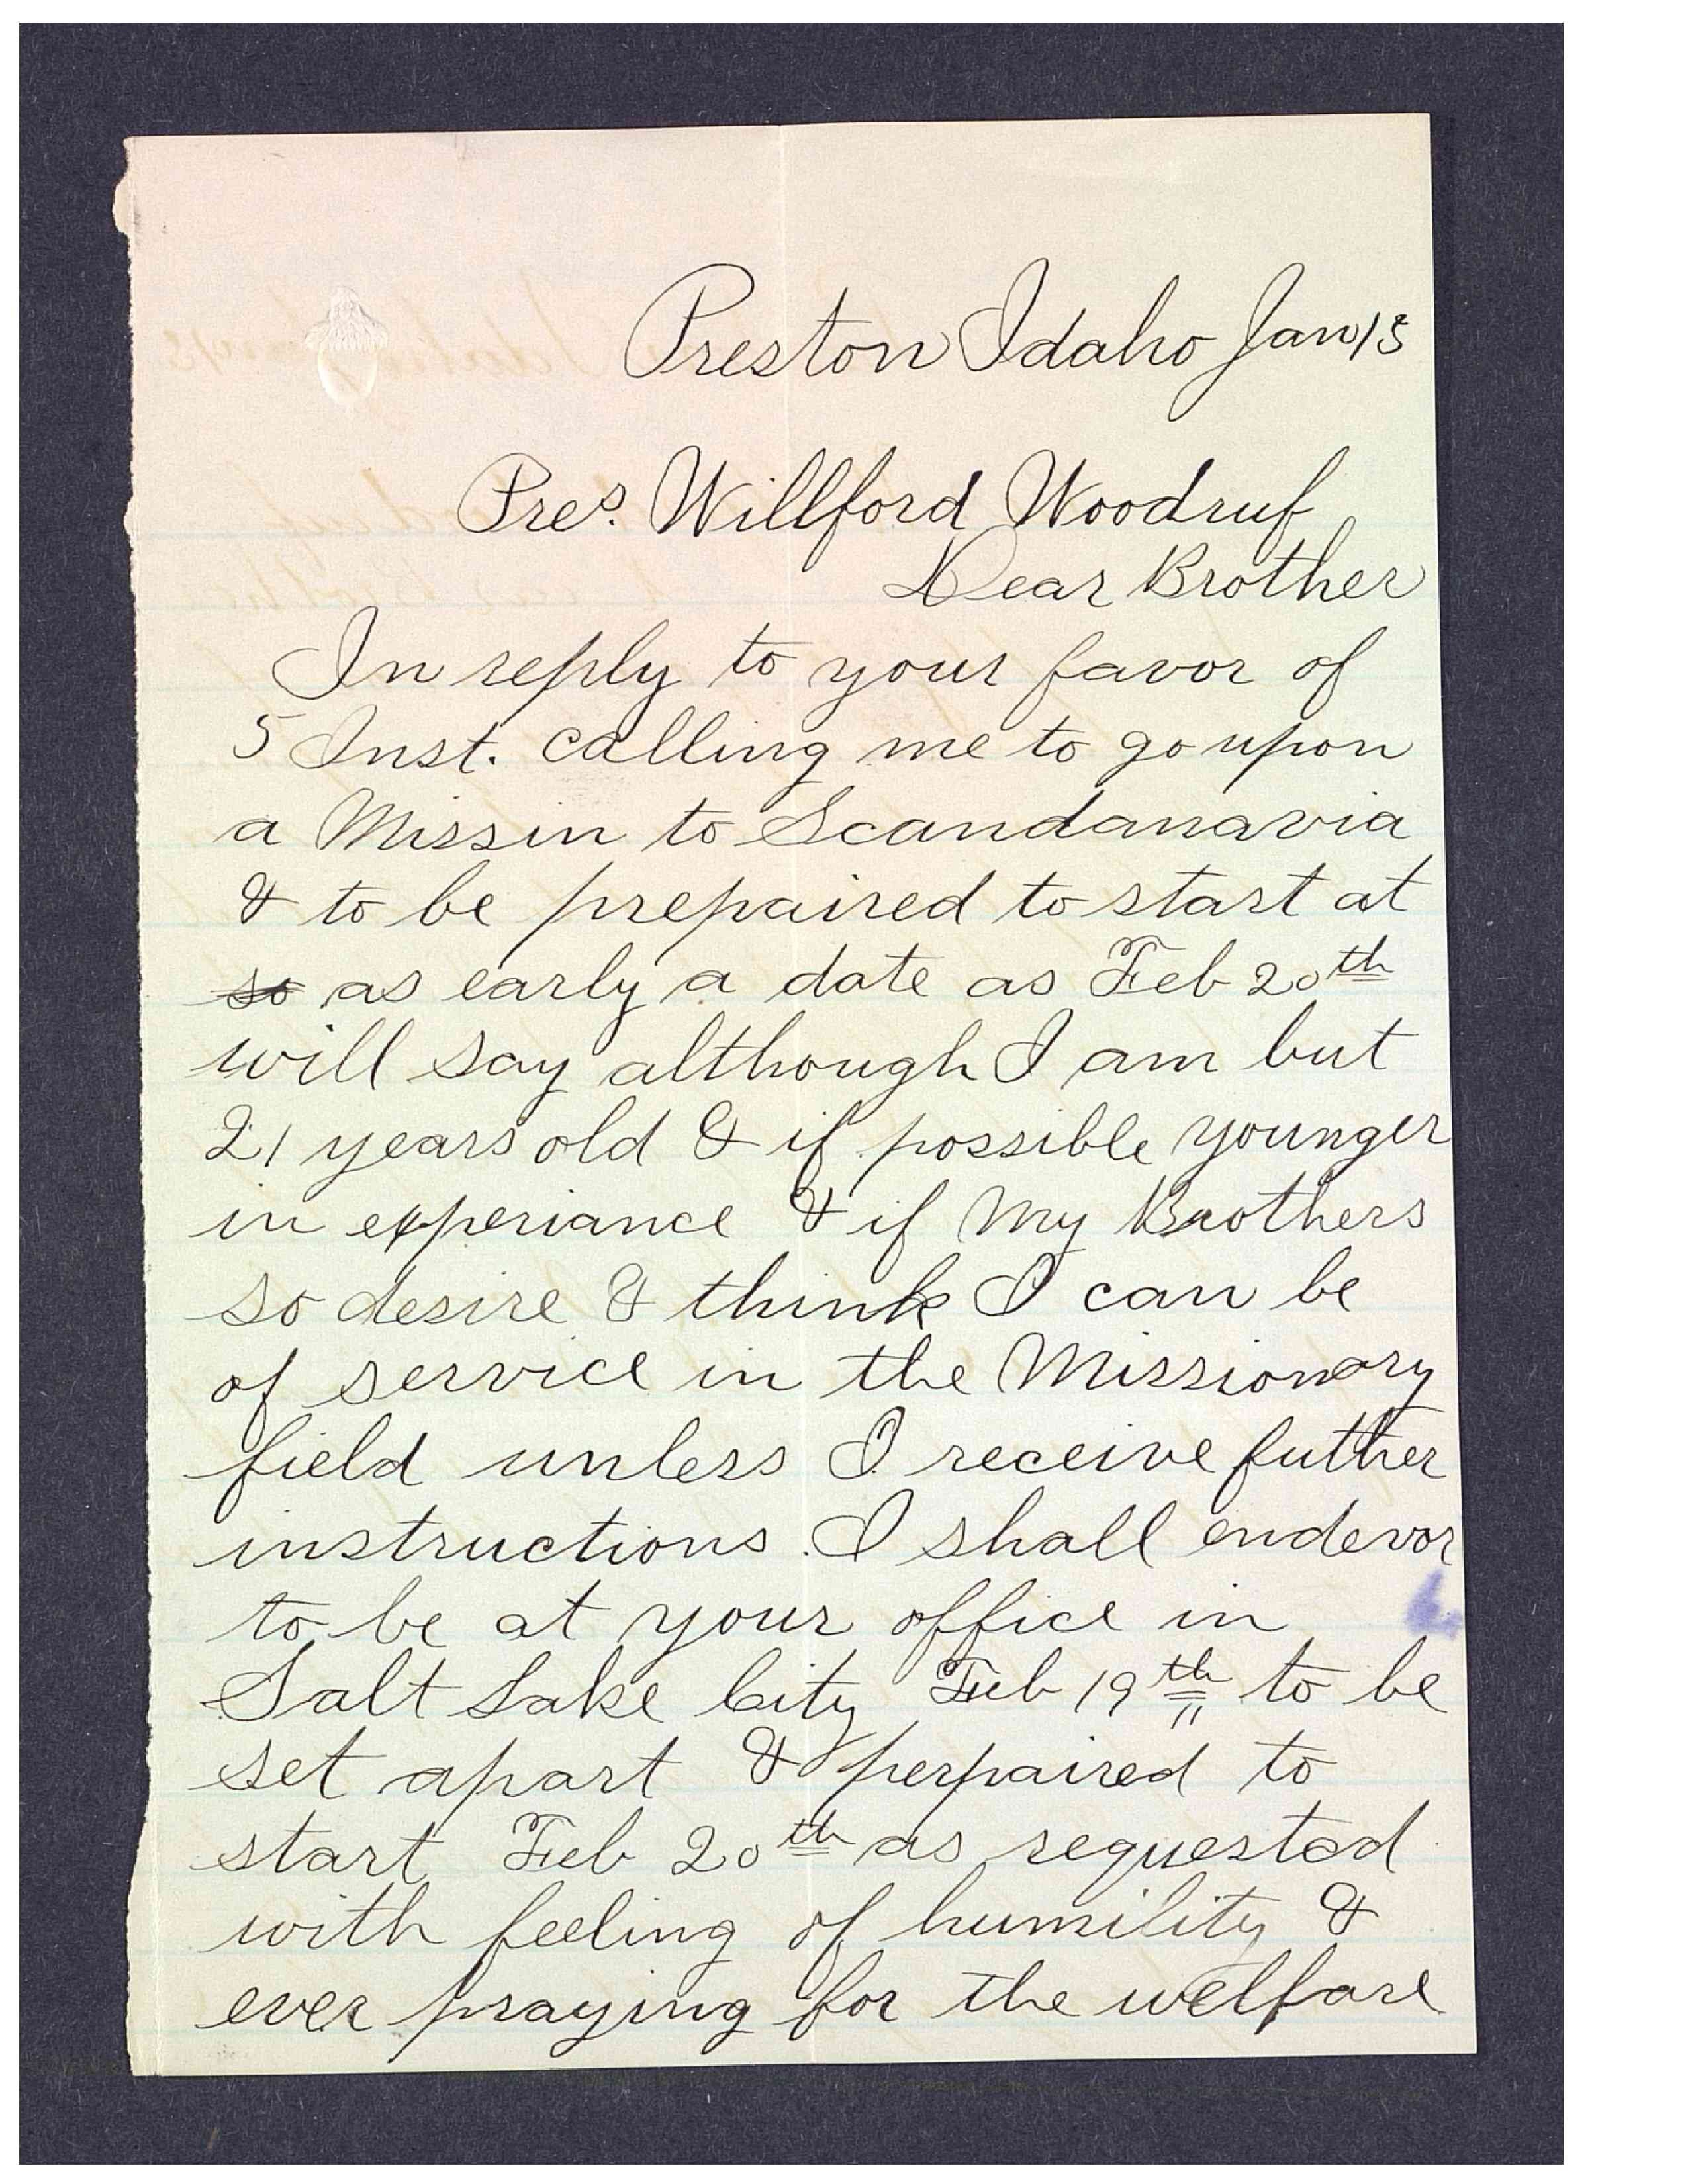 Preston Idaho Jan 13
Pres. Willford Woodruf
Dear Brother
In reply to your favor of
5 Inst. calling me to go upon
a Missin to Scandanavia
& to be prepaired to start at
so as early a date as Feb 20th
will say although I am but
21 years old & if possible younger
in experiance & if My Brothers
so desire & think I can be
of service in the Missionary
field unless I receive futher
instructions. I shall endevor
to be at your office in
Salt Lake City Feb 19th to be
set apart & perpaired to
start Feb 20th as requested
with feeling of humility &
ever praying for the welfare